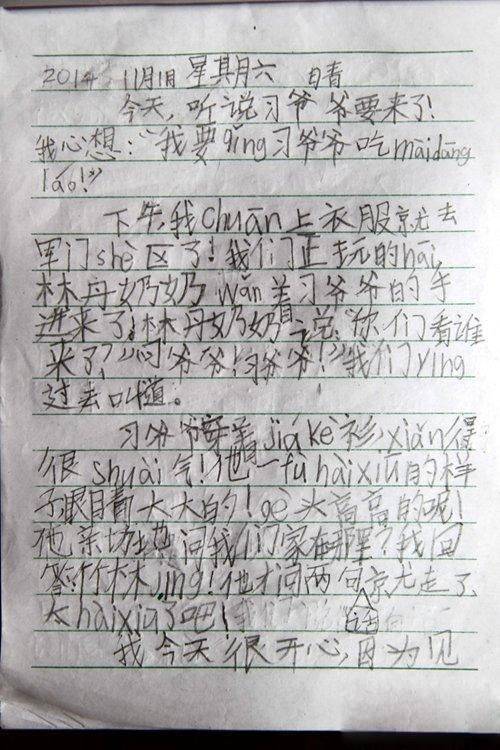 2014 11月1日 星其月六 日青
今天，听说习爷爷要来了！
我心想：“我要qǐng习爷爷吃màidāng
láo！”
下午，我chuān上衣服就去
军门shè区了！我们正玩的hāi，
林丹奶奶wǎn着习爷爷的手
进来了，林丹奶奶说：“你们看谁
来了？”“习爷爷！习爷爷！”我们yíng
过去叫道。
习爷爷穿着jiákè衫，xiǎn得
很shuài气！他一fù hàixiū的样
子眼睛大大的！gè头高高的呢！
他亲切地问我们家在哪里？我回
答：竹林jìng！他才问两句话就走了
太hàixiū了吧！
我今天很开心，因为见